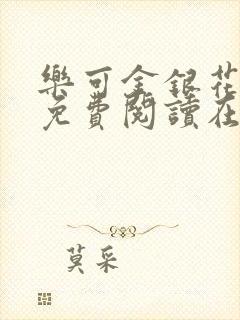 樂可金銀花
免費閱讀在
莫采